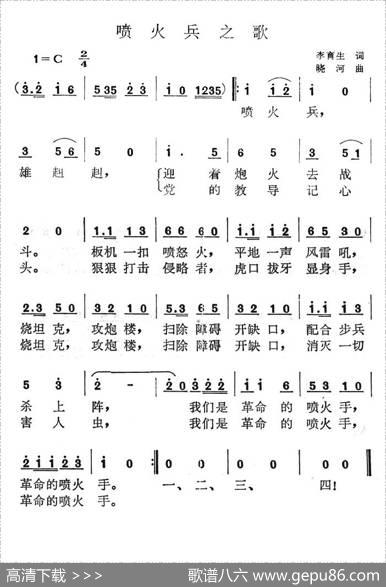 喷火兵之歌
1=C 2/4
李育生 词
晓河 曲
(3.2 i6 | 535 23 | i0 1235) |: i i2 | i 0 |
喷 火 兵,
3 56 | 5 0 | i . 5 | 6 i | 3 51 |
雄 赳 赳, 迎 着 炮 火 去 战
党 的 教 导 记 心
2 0 | 1.1 13 | 66 60 | i.i i2 | 65 60 |
斗。 板机一扣 喷怒火, 平地一声 风雷吼,
头。 狠狠打击 侵略者, 虎口拔牙 显身手,
2.3 50 | 32 10 | 5.5 65 | 32 10 | i.i i3 |
烧坦克, 攻炮楼, 扫除障碍 开缺口, 配合步兵
烧坦克, 攻炮楼, 扫除障碍 开缺口, 消灭一切
5 3 | 2 - | 20 322 | i i 6 | 53 56 |
杀 上 阵, 我们是 革命 的 喷火 手,
害 人 虫, 我们是 革命 的 喷火 手,
2ii 23 | i 0 :| 0 0 | 0 0 | 0 0 |
革命的喷火 手。 一、二、三、 四!
革命的喷火 手。
高清下载 >>>
歌谱八六 www.gepu86.com